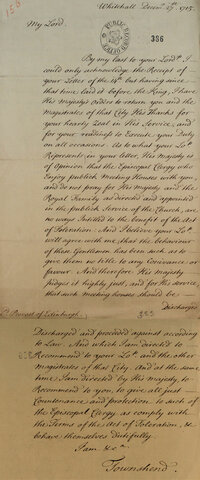 156
Whitehall Decemr. 27th. 1715.
386
My Lord.
By my last to your Lordp. I
could only acknowledge the Receipt of
your Letter of the 14th. but having since
that time laid it before the King, I have
His Majesty's Orders to return you and the
Magistrates of that City His Thanks for
your hearty Zeal in His Service, and
for your readiness to Execute your Duty
on all occasions. As to what your Lop.
Represents in your letter, His Majesty is
of Opinion that the Episcopal Clergy who
Enjoy publick Meeting Houses with you
and do not pray for His Majesty and the
Royal Family as directed and appointed
in the publick Service of the Church, are
no ways Intitled to the benefit of the Act
of Toleration: And I believe your Lop.
will agree with me, that the behaviour
of those Gentlemen has been such as to
give them no title to any Connivance or
favour And therefore His Majesty
judges it highly just, and for His service
that such meeting houses should be
Discharged
Ld. Provost of Edinburgh
Discharged and proceeded against according
to Law. And which I am directed to
Recommend to your Lop. and the other
magistrates of that City. And at the same
time I am directed by His Majesty to
Recommend to you, to give all just
Countenance and protection to such of
the Episcopal Clergy as comply with
the Terms of the Act of Toleration, &
behave themselves Dutifully.
I am &ca.
Townshend.